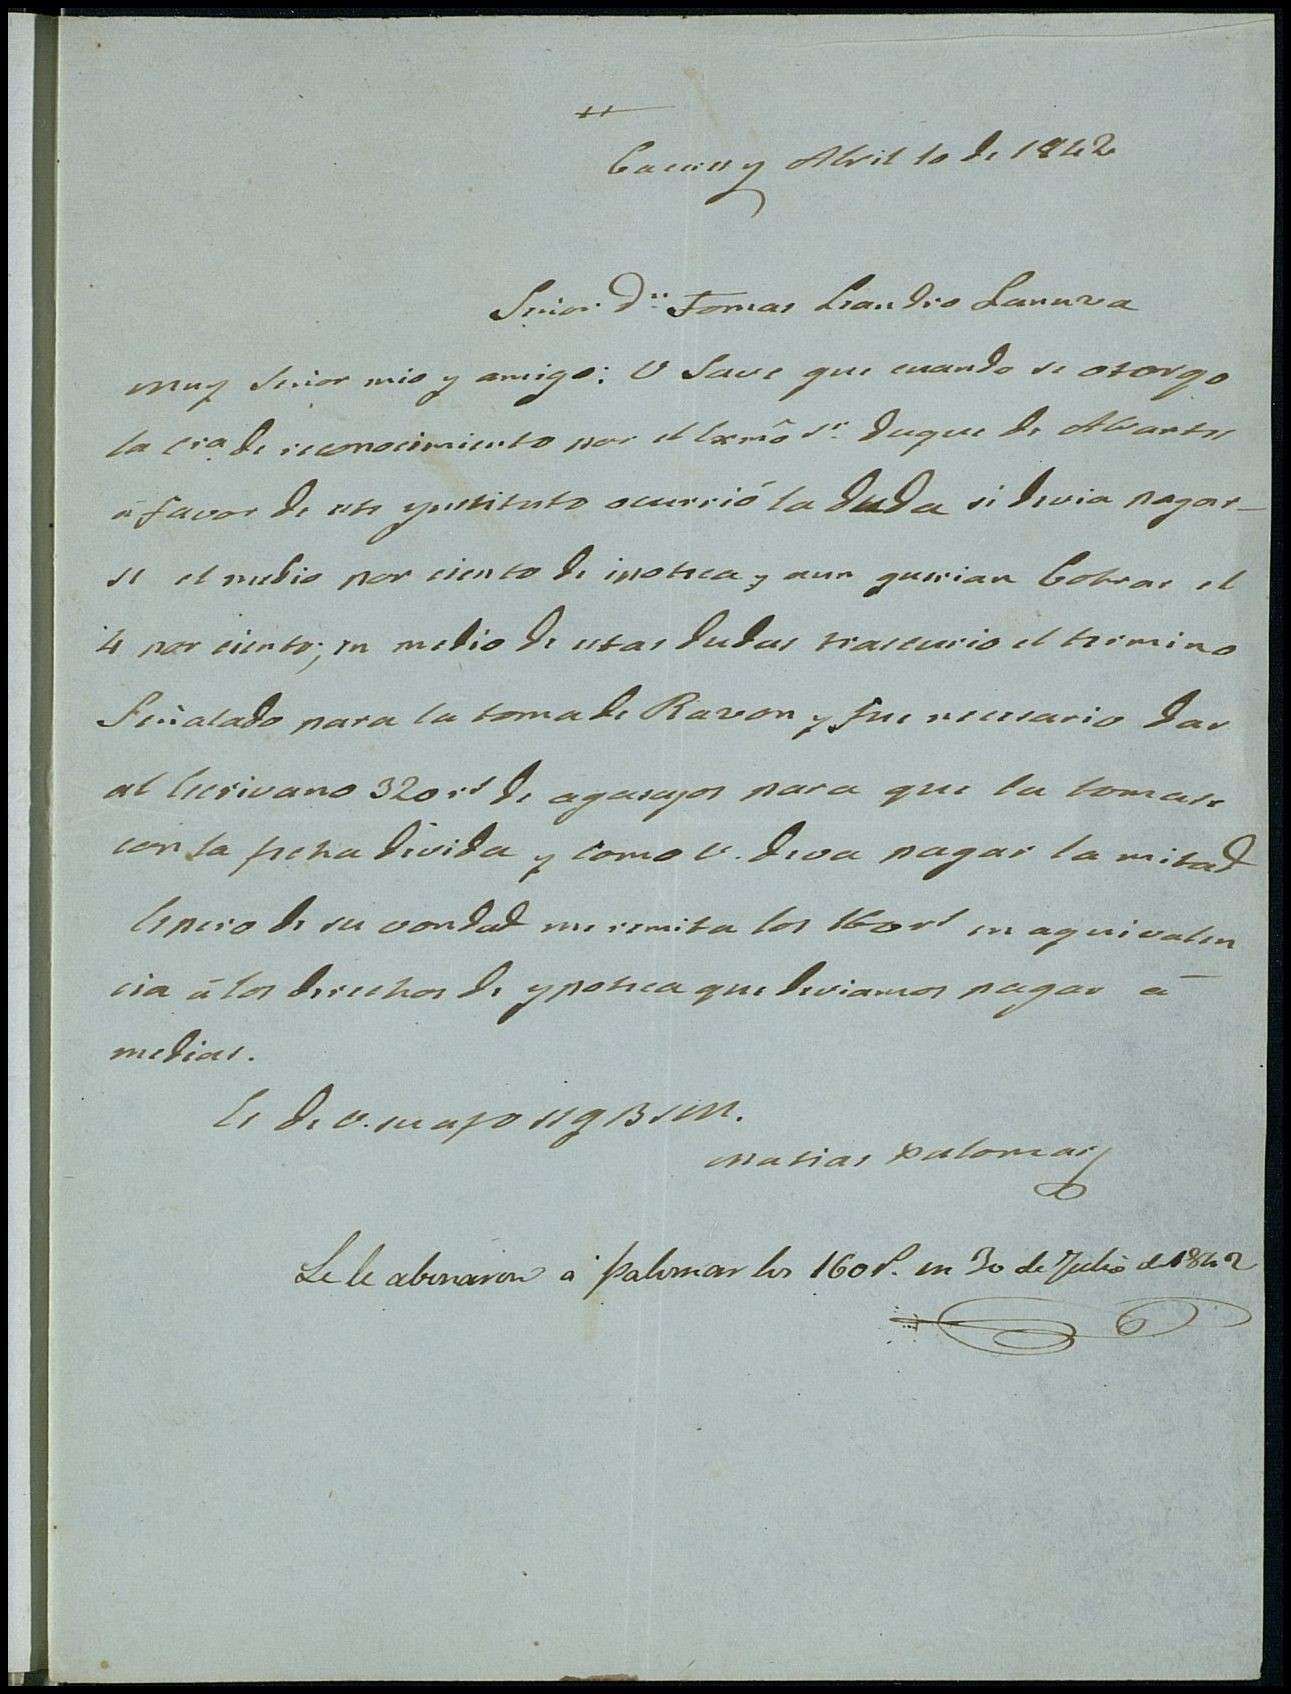 Caceres y Abril 10 de 1842
Señor Dn Tomas Leandro Lanuza
Muy Señor mio y amigo: V Save que cuando se otorgo
la Era de reconocimiento por el Exmo Sr. Duque de Abrantes
á favor de este ynstituto ocurrió la duda si devia pagar-
se el medio por ciento de ipoteca y aun querian Cobrar el
4 por ciento; en medio de estas dudas trascurio el termino
Señalado para la toma de Razon y fue necesario dar
al Escrivano 320 rs de agasajos para que la tomase
con la fecha devida y como V. deva pagar la mitad
Espero de su vondad me remita los 160 rs en aquivalen
cia á los derechos de ypoteca que deviamos pagar á
medias.
Es de V. su afo SSQBSM.
Matias Palomar
Se le abonaron á Palomar los 160 rs. en 30 de Julio de 1842